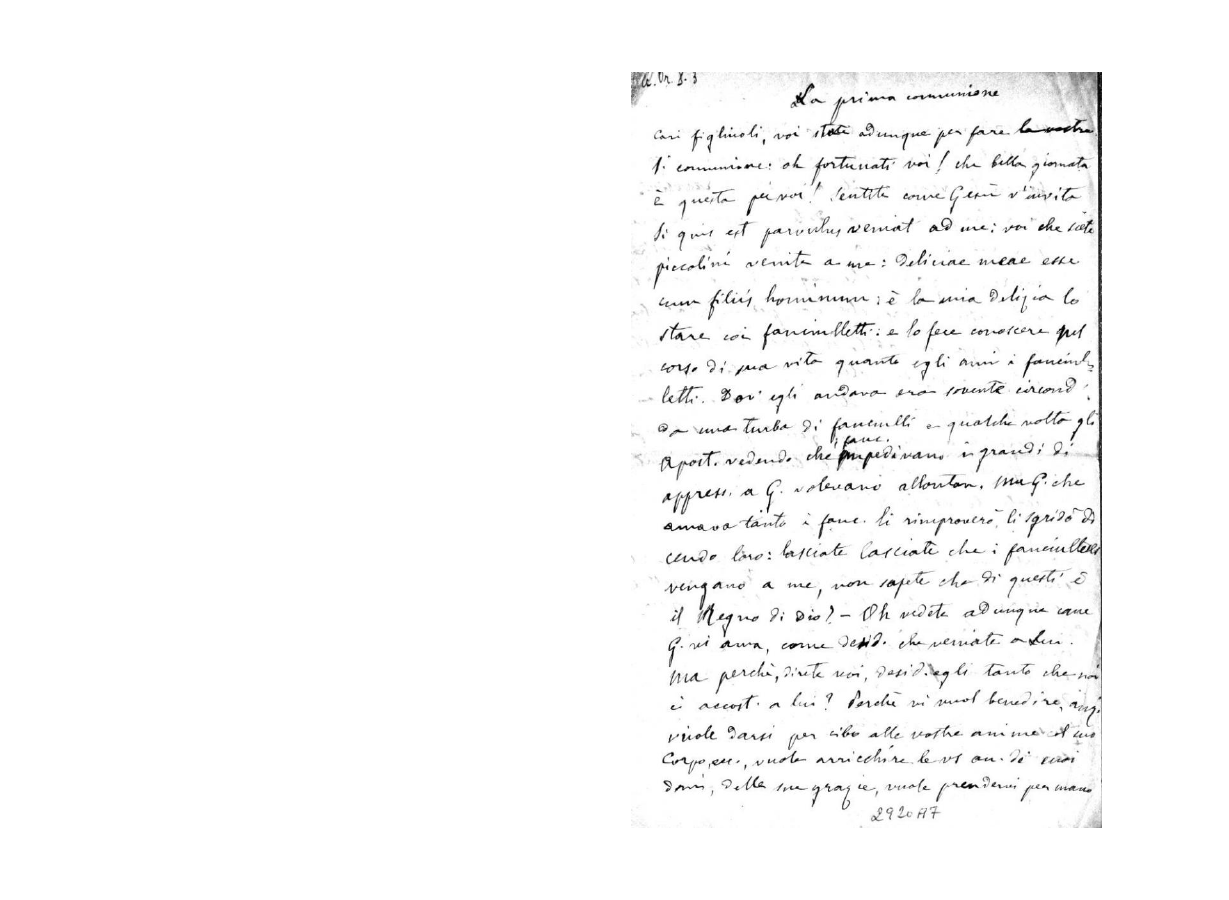 A. Or. 8. 3
La prima comunione
Cari figliuoli, voi state adunque per fare la vostra
1ª comunione: oh fortunati voi! che bella giornata
è questa per voi! Sentite come Gesù v'invita
Si quis est parvulus veniat ad me: voi che siete
piccolini venite a me: deliciae meae esse
cum filiis hominum: è la mia delizia lo
stare coi fanciulletti: e lo fece conoscere nel
corso di sua vita quanto egli ami i fanciul-
letti. Dov' egli andava era sovente circond.
da una turba di fanciulli e qualche volta gli
i fanc.
Apost. vedendo che impedivano i grandi di
appress. a G. volevano allontan. ma G. che
amava tanto i fanc. li rimproverò, li sgridò di
cendo loro: lasciate lasciate che i fanciulletti
vengano a me, non sapete che di questi è
il Regno di Dio? – Oh vedete adunque come
G. vi ama, come desid. che veniate a Lui.
Ma perchè, direte voi, desid. egli tanto che noi
ci accost. a lui? Perchè vi vuol benedire, anzi
vuole darsi per cibo alle vostre anime col suo
Corpo, ecc., vuole arricchire le vs an. di suoi
doni, delle sue grazie, vuole prendervi per mano
2920 A7